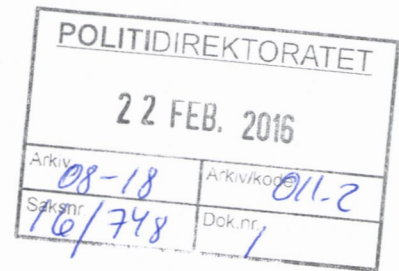 POLITIDIREKTORATET
22 FEB. 2016
Arkiv 08-18 Arkivkode 011-2
Saksnr. 16/748 Dok.nr. 1